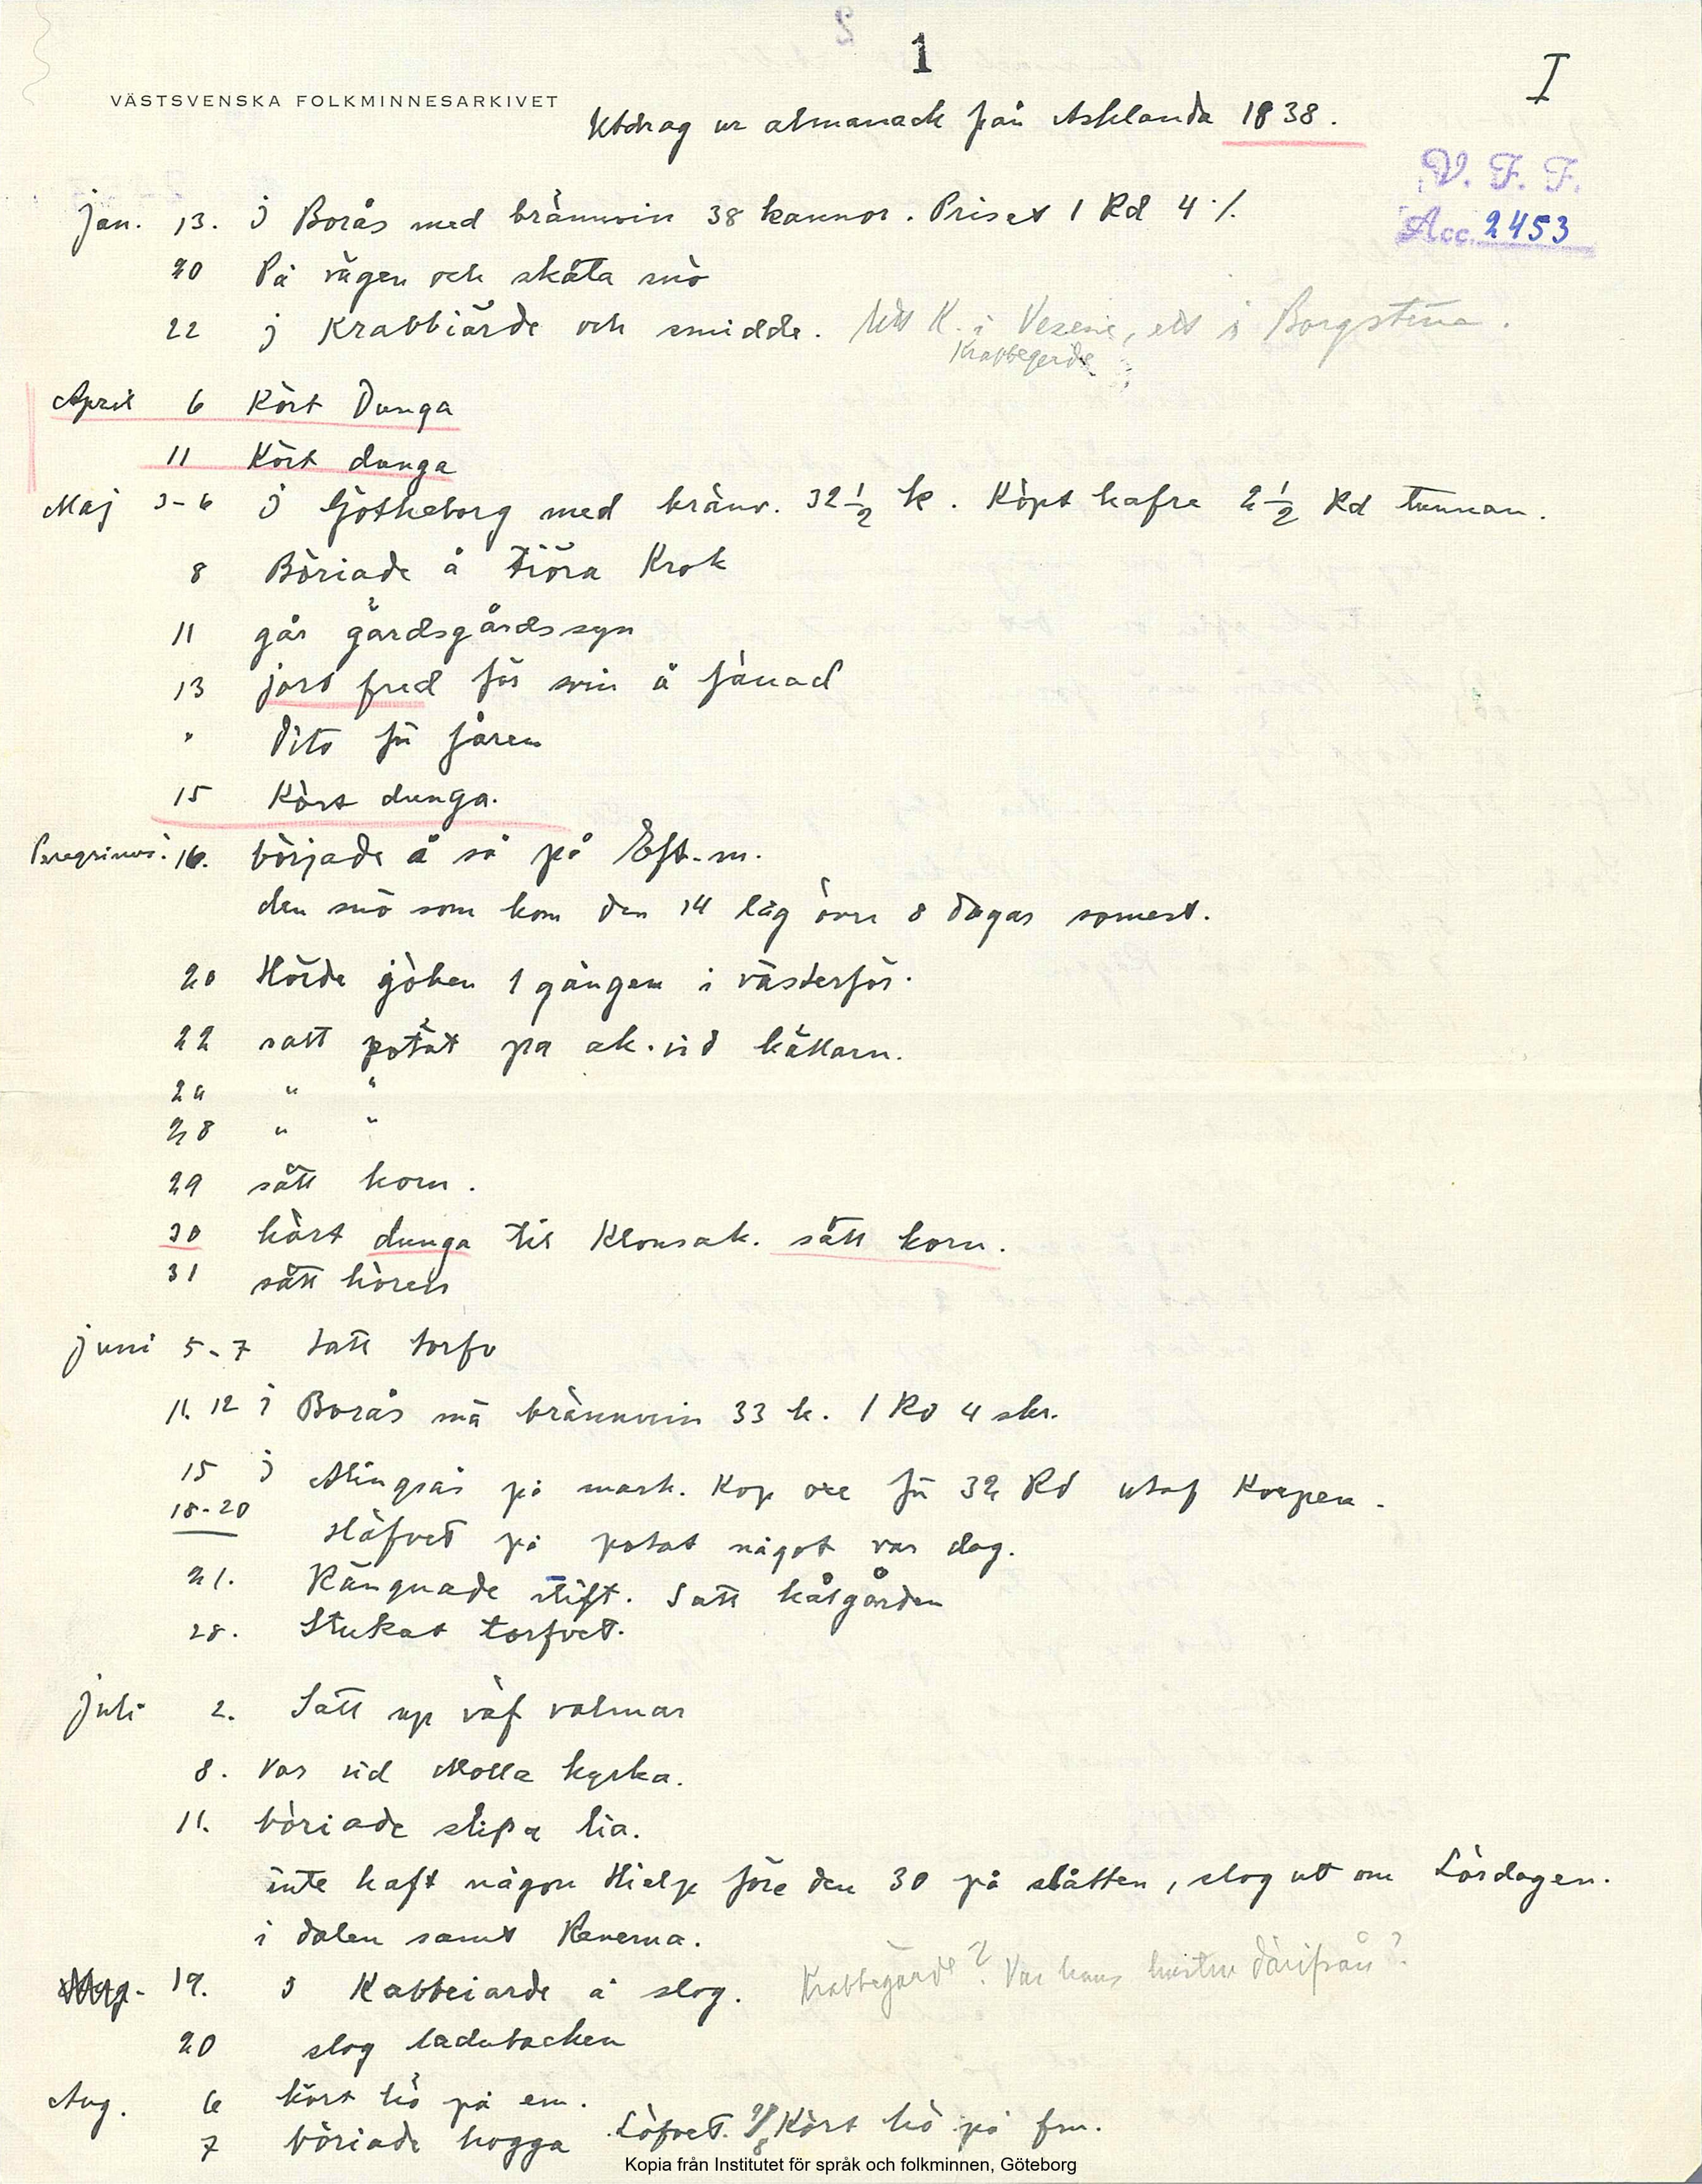 1
I
VÄSTSVENSKA FOLKMINNESARKIVET
Utdrag ur almanack från Asklanda 1838.
V. F. F.
Acc. 2453
jan. 13. J Borås med brännvin 38 kannor. Priset 1 Rd 4 %.
20 På vägen och skåta snö
22 j Krabbiärde och smidde. Ett K. i Vesene, ett i Borgstena.
Krabbegärde
April 6 Kört Dunga
11 Kört dunga
Maj 3-6 J Götheborg med bränv. 32 1/2 k. Köpt hafre 2 1/2 Rd tunnan.
8 Böriade å tiöra Krok
11 går gärdsgårdssyn
13 jord fred för svin å fänad
" Dito för fåren
15 Kört dunga.
Peregrinus. 16. började å så på Eft.m.
den snö som kom den 14 låg över 8 dagar somest.
20 Hörde göken 1 gången i väster för.
22 satt potät pa ak. vid källarn.
24 " "
28 " "
29 sått korn.
30 kört dunga til Klonsak. sått korn.
31 sått hören
juni 5-7 Tatt torfv
11. 12 i Borås må brännvin 33 k. 1 Rd 4 skr.
15 J Alingsås på mark. Kop oxe för 32 Rd utaf Korpen.
18-20 släfvet på potat något var dag.
21. Rängnade stift. Satt kålgården
28. Stukat torfvet.
juli 2. Satt up väf valmar
8. Var vid Molla kyrka.
11. böriade slipa lia.
inte haft någon Hielp före den 30 på slåtten, slog ut om Lördagen.
i dalen samt Renerna.
19. J Kabbeiarde å slog. Krabbegärde? Var hans hustru därifrån?
20 slog ladubacken
Aug. 6 kört hö på em.
7 böriade hogga Löfvet. 9/8 Kört hö på fm.
Kopia från Institutet för språk och folkminnen, Göteborg